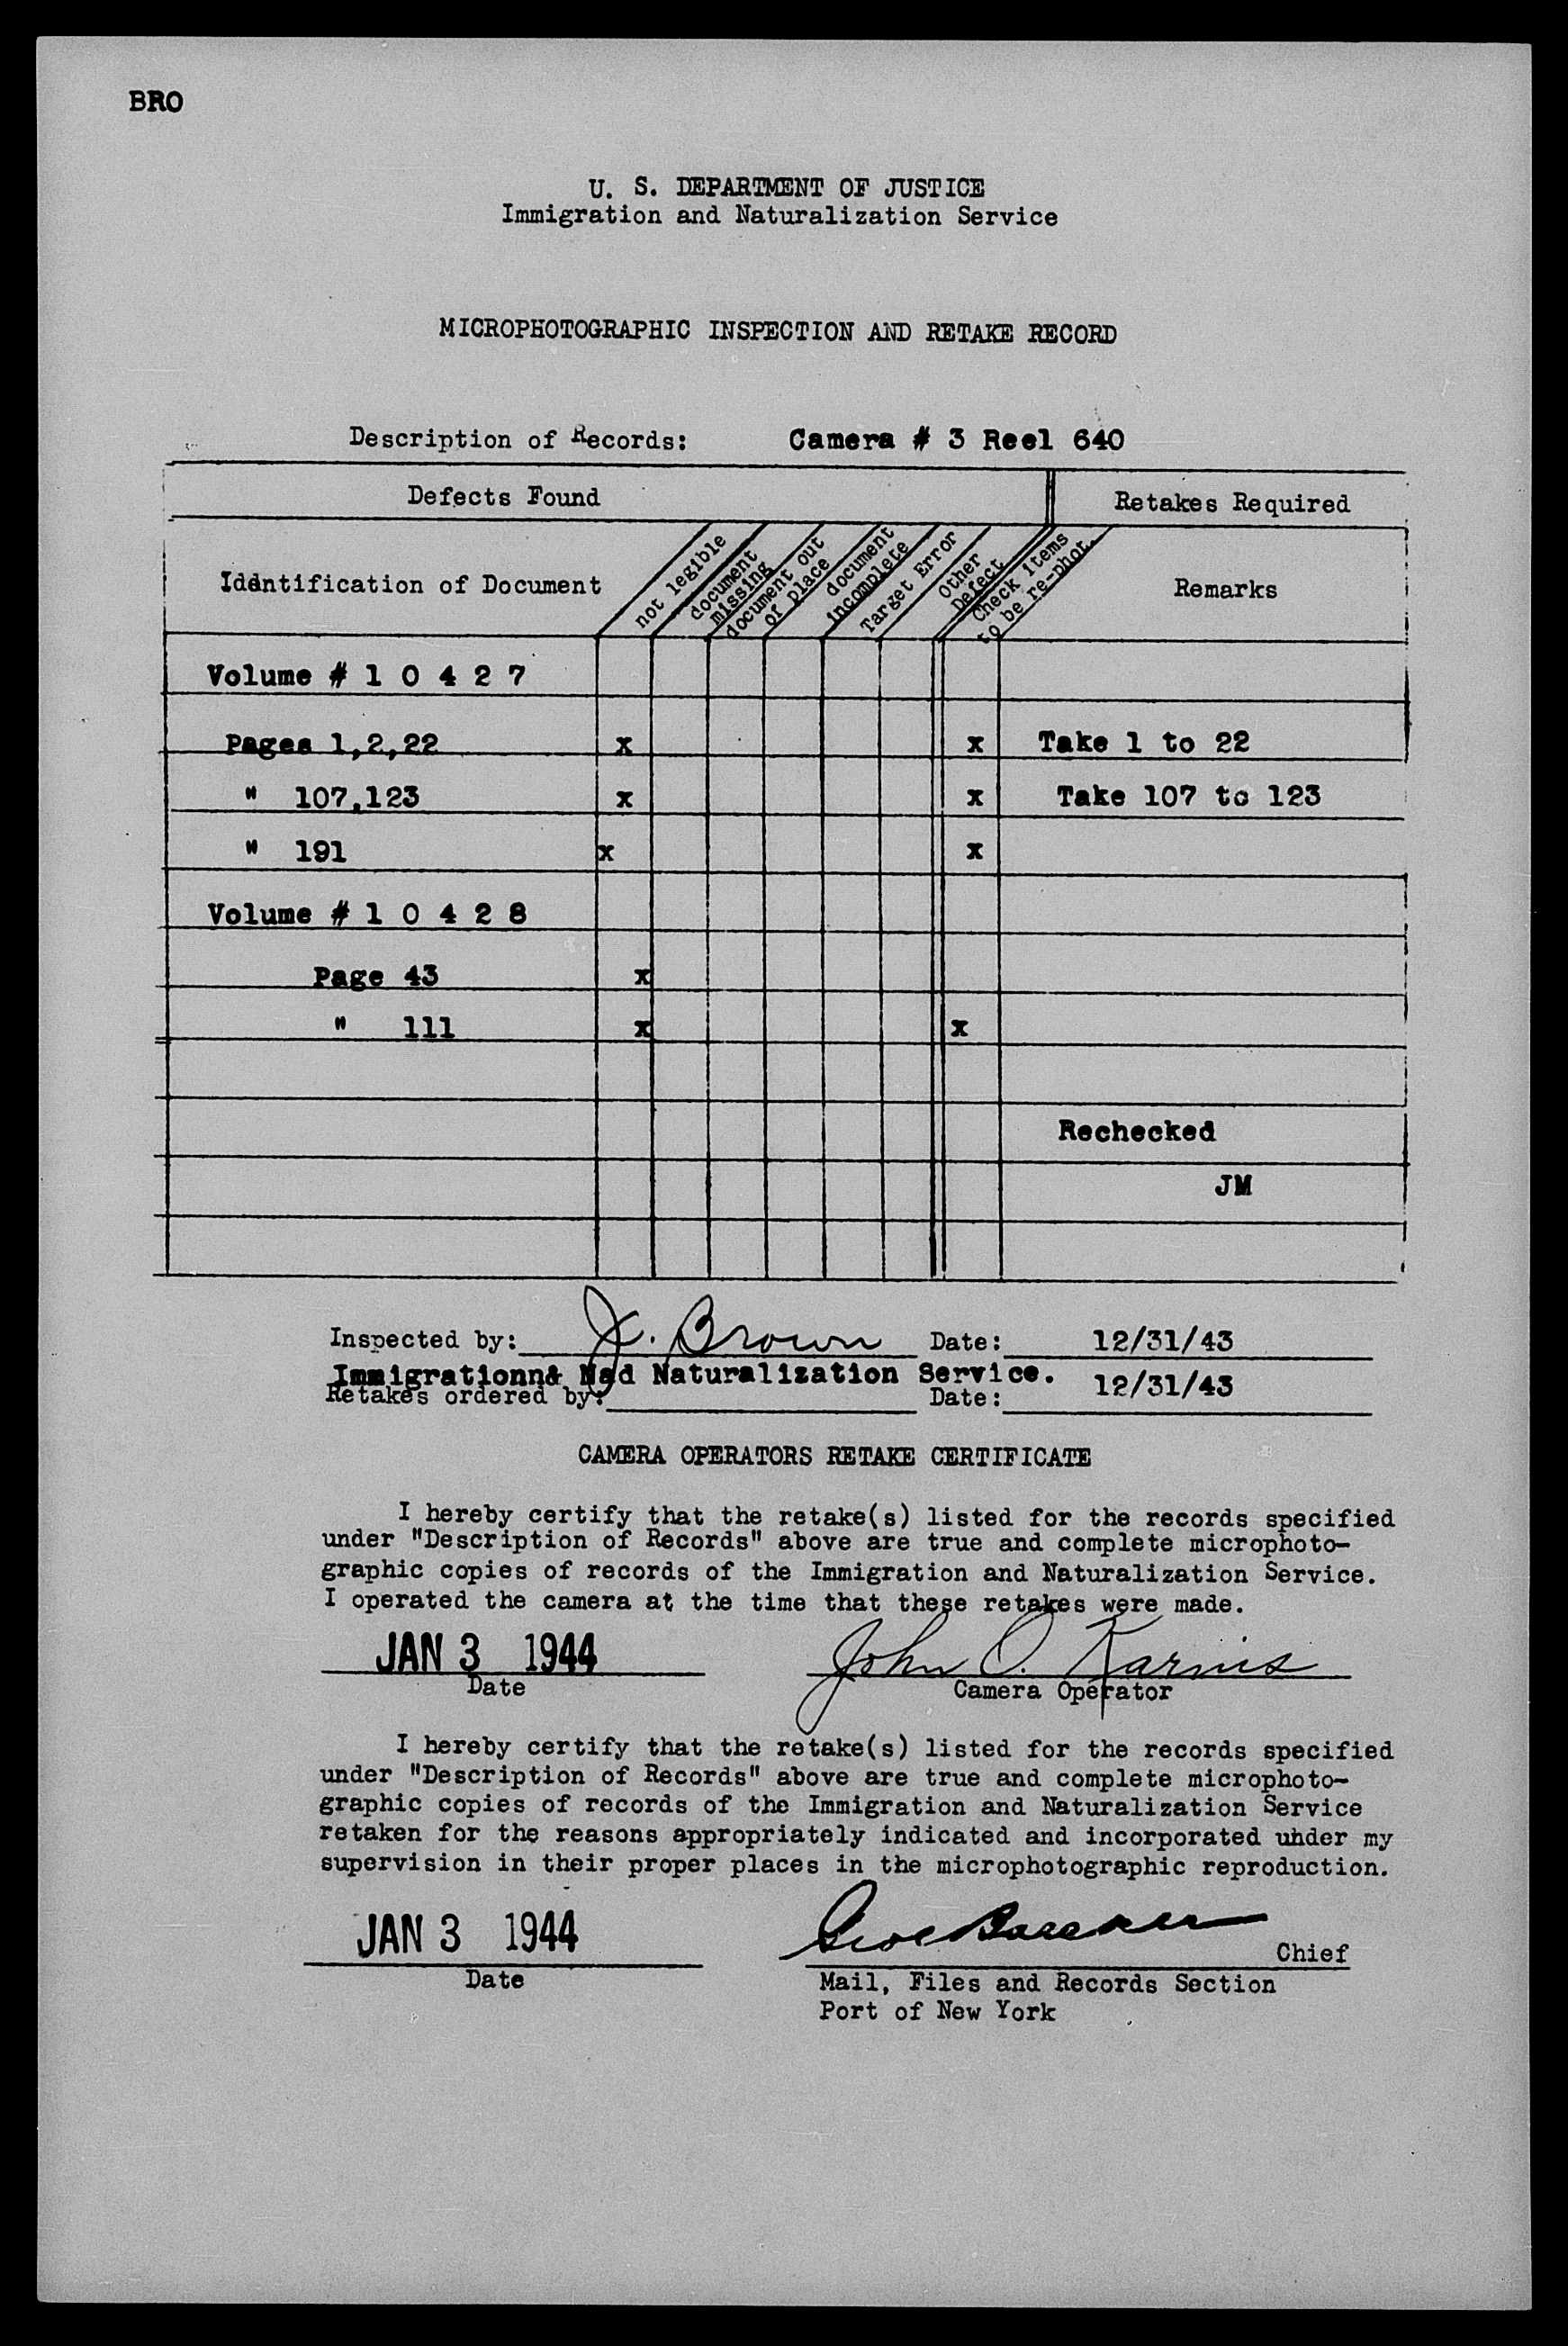 BRO
U. S. DEPARTMENT OF JUSTICE
Immigration and Naturalization Service
MICROPHOTOGRAPHIC INSPECTION AND RETAKE RECORD
Description of Records: Camera # 3 Reel 640
Defects Found Retakes Required
Identification of Document
not legible
document
missing
document out
of place
document
incomplete
Target Error
Other
Defect
Check items
to be re-phot.
Remarks
Volume # 1 0 4 2 7
Pages 1,2,22 x x Take 1 to 22
" 107,123 x x Take 107 to 123
" 191 x x
Volume # 1 0 4 2 8
Page 43 x
" 111 x x
Rechecked
JM
Inspected by: J. Brown Date: 12/31/43
Immigrationn& Nad Naturalization Service. 12/31/43
Retakes ordered by: Date:
CAMERA OPERATORS RETAKE CERTIFICATE
I hereby certify that the retake(s) listed for the records specified
under "Description of Records" above are true and complete microphoto-
graphic copies of records of the Immigration and Naturalization Service.
I operated the camera at the time that these retakes were made.
JAN 3 1944 John O. Karnis
Date Camera Operator
I hereby certify that the retake(s) listed for the records specified
under "Description of Records" above are true and complete microphoto-
graphic copies of records of the Immigration and Naturalization Service
retaken for the reasons appropriately indicated and incorporated uhder my
supervision in their proper places in the microphotographic reproduction.
JAN 3 1944 Chief
Date Mail, Files and Records Section
Port of New York